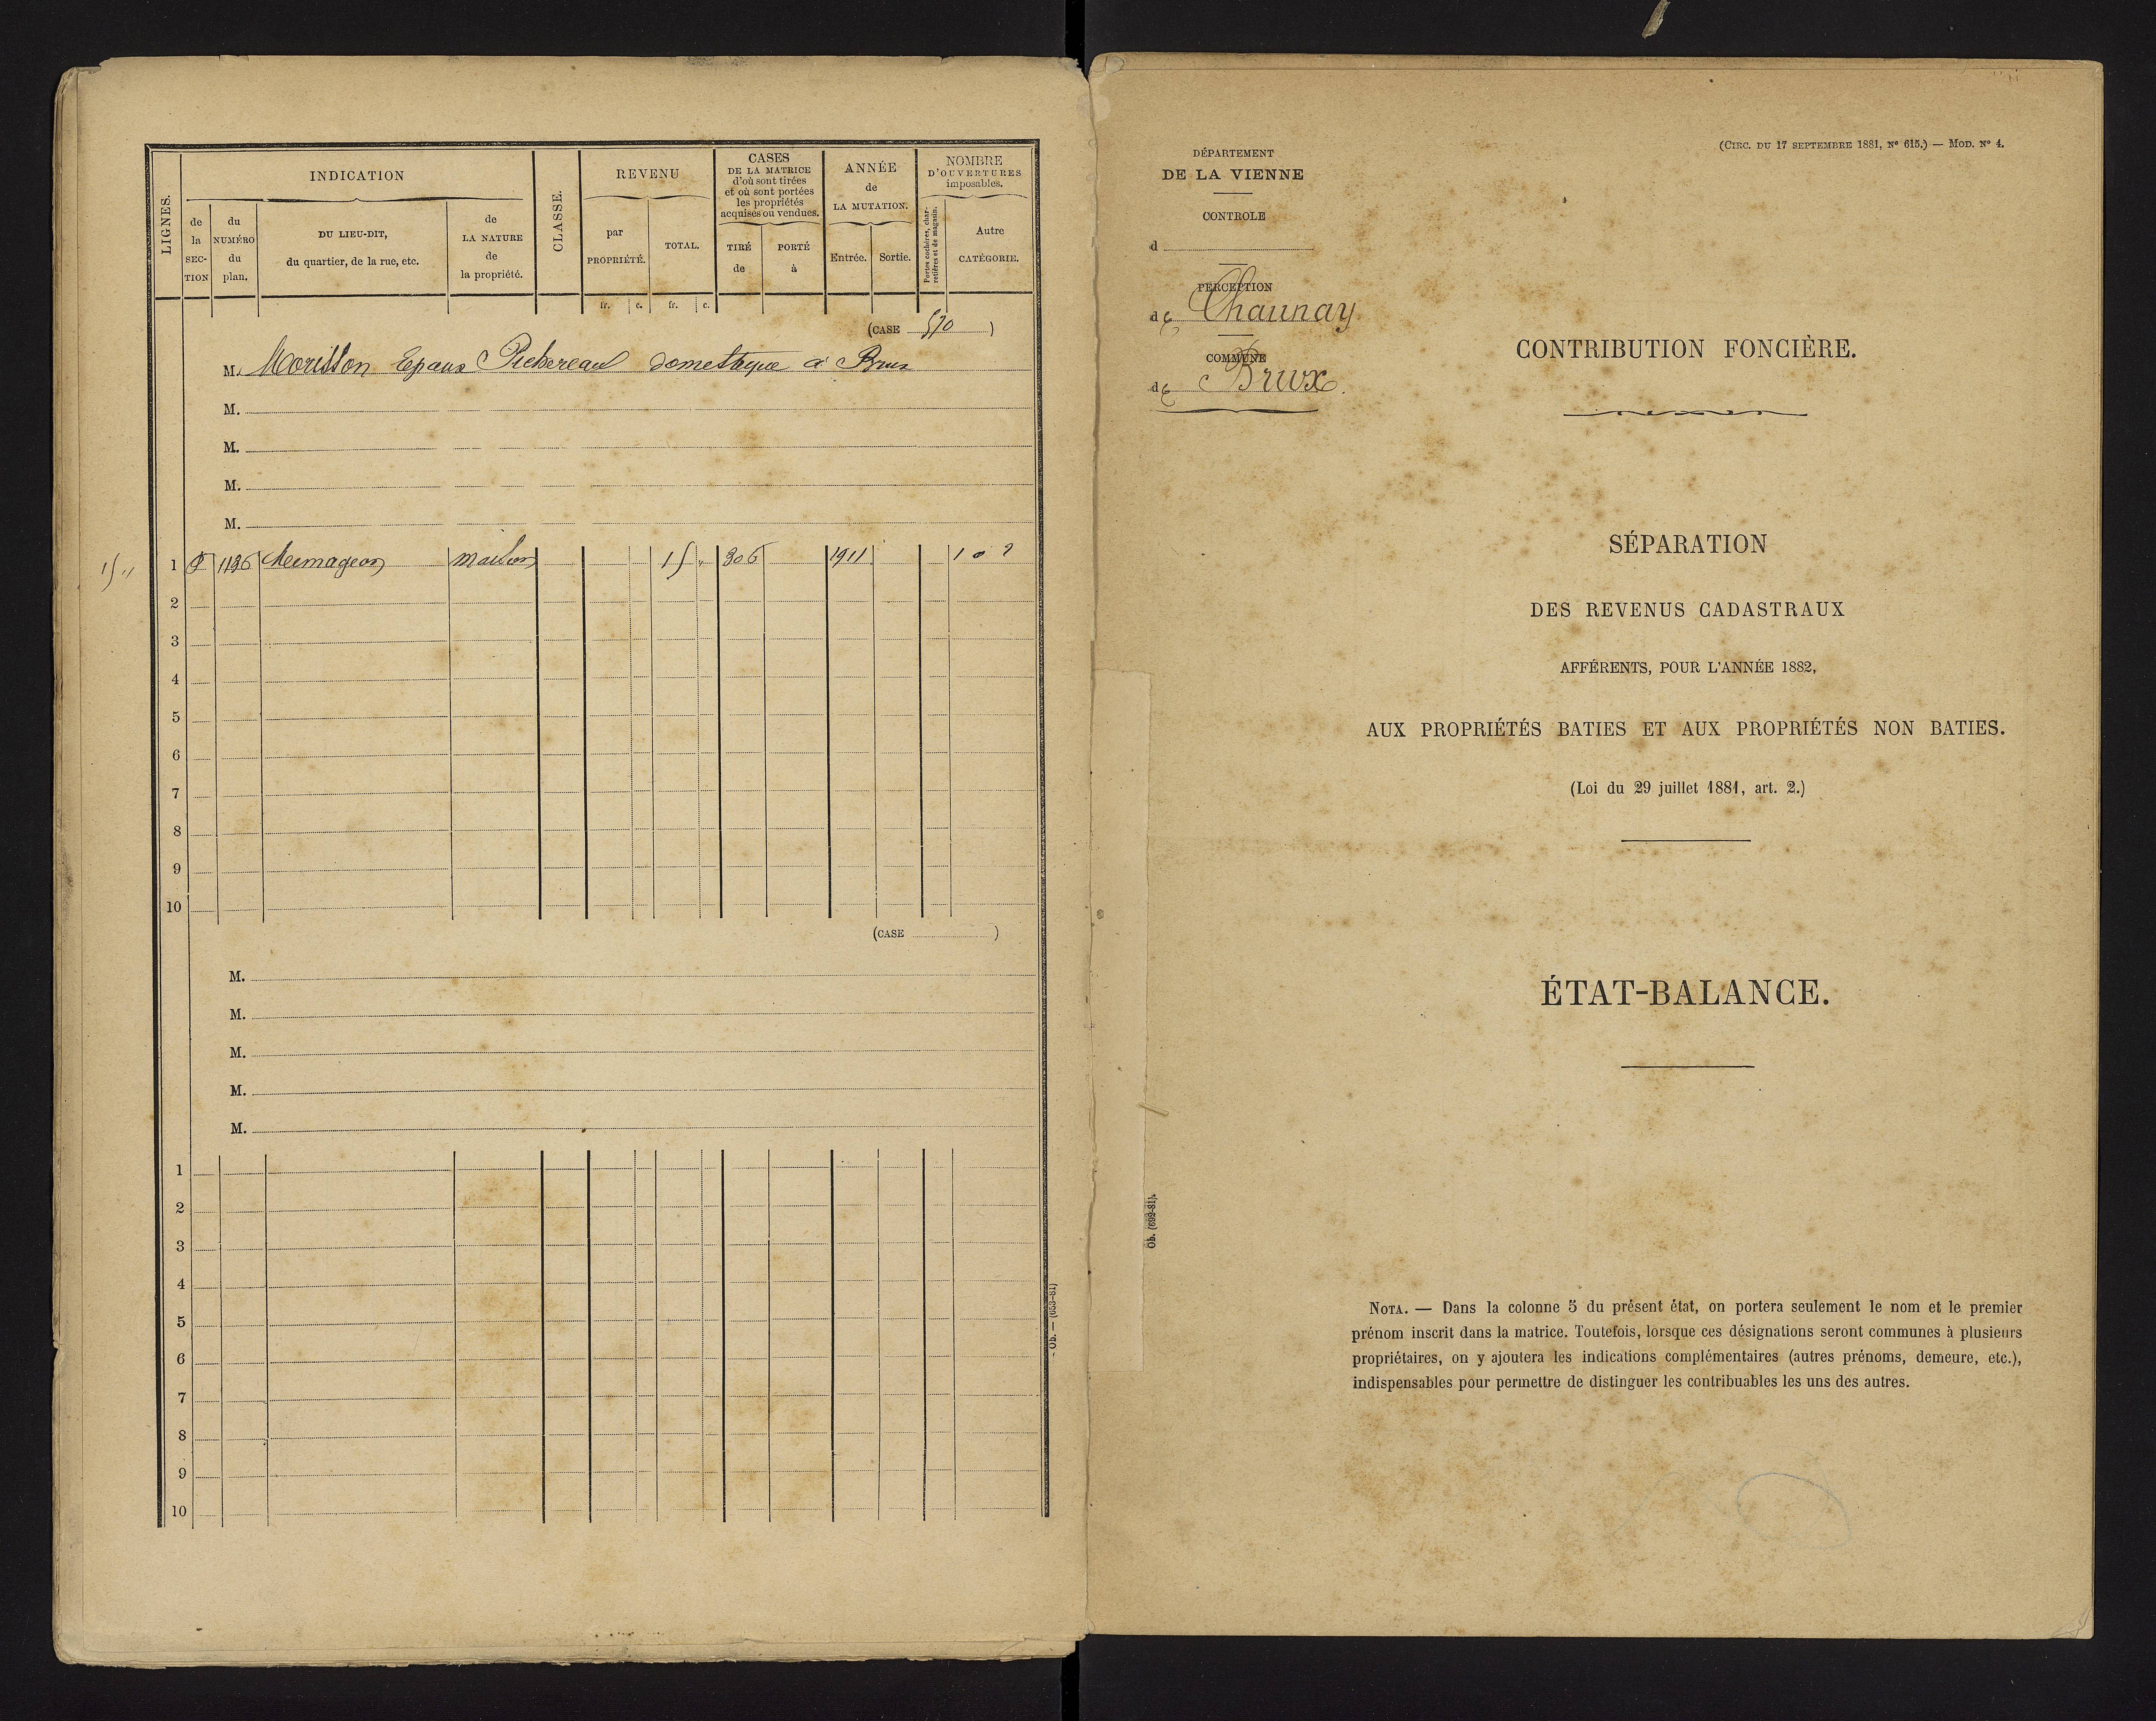 LIGNES.
INDICATION
de la SECTION
du NUMÉRO du plan.
DU LIEU-DIT, du quartier, de la rue, etc.
de LA NATURE de la propriété.
CLASSE.
REVENU
par PROPRIÉTÉ.
TOTAL.
CASES DE LA MATRICE d'où sont tirées et où sont portées les propriétés acquises ou vendues.
TIRÉ de
PORTÉ à
ANNÉE de LA MUTATION.
Entrée.
Sortie.
NOMBRE D'OUVERTURES imposables.
Portes cochères, charretières et de magasin.
Autre CATÉGORIE.
fr. c. fr. c.
(CASE 570 )
M. Morisson Epaux Pichereau domestique à Brux
M.
M.
M.
M.
15 "
1 1136 maison 15 " 306 1911 1 0
2
3
4
5
6
7
8
9
10
(CASE )
M.
M.
M.
M.
M.
1
2
3
4
5
6
7
8
9
10
- Ob. — (653-81)
(CIRC. DU 17 SEPTEMBRE 1881, N° 615.) — MOD. N° 4.
DÉPARTEMENT
DE LA VIENNE
CONTROLE
d
PERCEPTION
de Chaunay
COMMUNE
de Brux.
CONTRIBUTION FONCIÈRE.
SÉPARATION
DES REVENUS CADASTRAUX
AFFÉRENTS, POUR L'ANNÉE 1882,
AUX PROPRIÉTÉS BATIES ET AUX PROPRIÉTÉS NON BATIES.
(Loi du 29 juillet 1881, art. 2.)
ÉTAT-BALANCE.
Ob. (692-81).
NOTA. — Dans la colonne 5 du présent état, on portera seulement le nom et le premier
prénom inscrit dans la matrice. Toutefois, lorsque ces désignations seront communes à plusieurs
propriétaires, on y ajoutera les indications complémentaires (autres prénoms, demeure, etc.),
indispensables pour permettre de distinguer les contribuables les uns des autres.